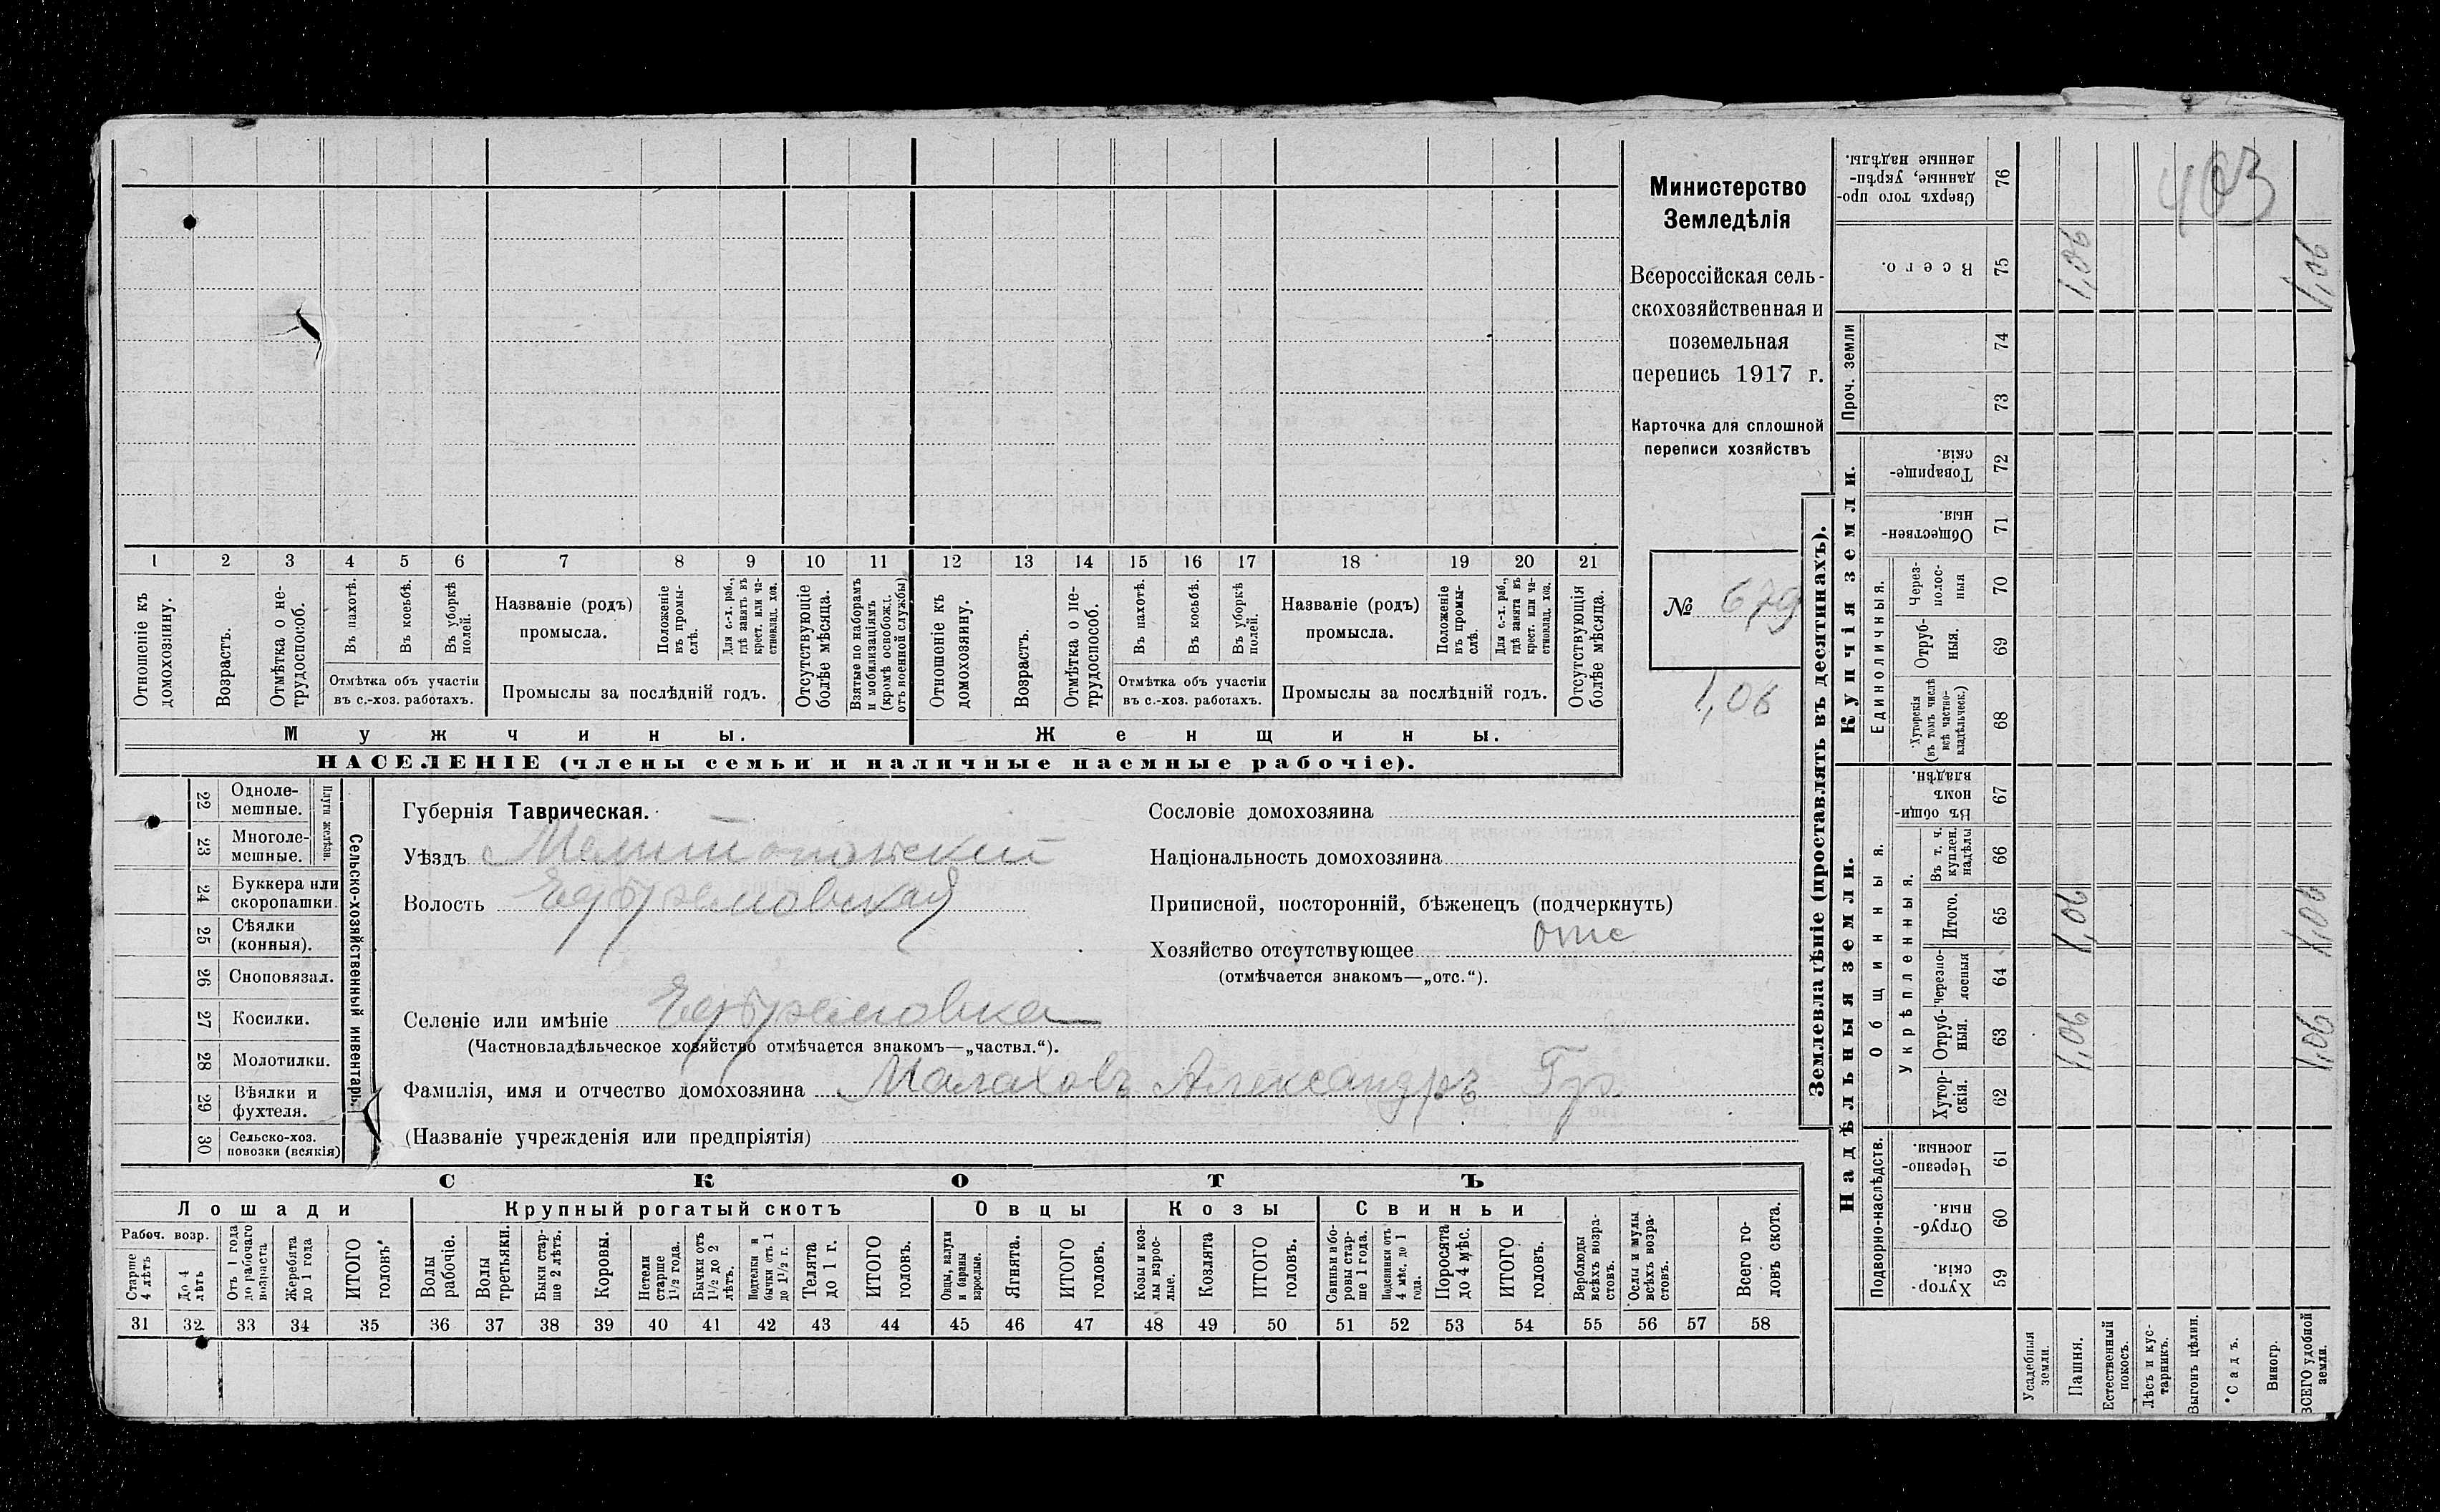 Министерство
Земледѣлія
Всероссійская сель-
скохозяйственная и
поземельная
перепись 1917 г.
Карточка для сплошной
переписи хозяйствъ
№ 679
1,06
463
1 2 3 4 5 6 7 8 9 10 11 12 13 14 15 16 17 18 19 20 21
Отношеніе къ домохозяину.
Возрастъ.
Отмѣтка о не-трудоспособ.
Въ пахотѣ.
Въ косьбѣ.
Въ уборкѣ полей.
Отмѣтка объ участіи
въ с.-хоз. работахъ.
Названіе (родъ)
промысла.
Положеніе въ промы-слѣ.
Для с.-х. раб., гдѣ занятъ въ крест. или ча-стновлад. хоз.
Промыслы за послѣдній годъ.
Отсутствующіе болѣе мѣсяца.
Взятые по наборамъ и мобилизаціямъ (кромѣ освобожд. отъ военной службы)
Отношеніе къ домохозяину.
Возрастъ.
Отмѣтка о не-трудоспособ.
Въ пахотѣ.
Въ косьбѣ.
Въ уборкѣ полей.
Отмѣтка объ участіи
въ с.-хоз. работахъ.
Названіе (родъ)
промысла.
Положеніе въ промы-слѣ.
Для с.-х. раб., гдѣ занята въ крест. или ча-стновлад. хоз.
Промыслы за послѣдній годъ.
Отсутствующія болѣе мѣсяца.
Мужчины.
Женщины.
НАСЕЛЕНІЕ (члены семьи и наличные наемные рабочіе).
22 Одноле-мешные.
23 Многоле-мешные.
Плуги желѣзн.
24 Буккера или скоропашки.
25 Сѣялки (конныя).
26 Сноповязал.
27 Косилки.
28 Молотилки.
29 Вѣялки и фухтеля.
30 Сельско-хоз. повозки (всякія)
Сельско-хозяйственный инвентарь.
Губернія Таврическая.
Уѣздъ Мелитопольскій
Волость Ефремовская
Селеніе или имѣніе Ефремовка
(Частновладѣльческое хозяйство отмѣчается знакомъ—„частвл.“).
Фамилія, имя и отчество домохозяина Малаховъ Александръ Гр.
(Названіе учрежденія или предпріятія)
Сословіе домохозяина
Національность домохозяина
Приписной, посторонній, бѣженецъ (подчеркнуть)
Хозяйство отсутствующее отс
(отмѣчается знакомъ—„отс.“).
СКОТЪ
Лошади
Рабоч. возр.
Старше 4 лѣтъ
До 4 лѣтъ
Отъ 1 года до рабочаго возраста
Жеребята до 1 года
ИТОГО головъ.
Крупный рогатый скотъ
Волы рабочіе.
Волы третьяки.
Быки стар-ше 2 лѣтъ.
Коровы.
Нетели старше 1½ года.
Бычки отъ 1½ до 2 лѣтъ.
Подтелки и бычки отъ 1 до 1½ г.
Телята до 1 г.
ИТОГО головъ.
Овцы
Овцы, валухи и бараны взрослые.
Ягнята.
ИТОГО головъ.
Козы
Козы и коз-лы взрос-лые.
Козлята
ИТОГО головъ.
Свиньи
Свиньи и бо-ровы стар-ше 1 года.
Подсвинки отъ 4 мѣс. до 1 года.
Поросята до 4 мѣс.
ИТОГО головъ.
Верблюды всѣхъ возра-стовъ.
Ослы и мулы всѣхъ возра-стовъ.
Всего го-ловъ скота.
31 32 33 34 35 36 37 38 39 40 41 42 43 44 45 46 47 48 49 50 51 52 53 54 55 56 57 58
Землевладѣніе (проставлять въ десятинахъ).
Надѣльныя земли.
Купчія земли.
Проч. земли
Подворно-наслѣдств.
Общинныя.
Укрѣпленныя.
Единоличныя.
Сверхъ того про-данные, укрѣп-ленные надѣлы. 76
Всего. 75 1,06 1,06
74
73
Товарище-скія. 72
Обществен-ныя. 71
Через-полос-ныя 70
Отруб-ныя. 69
Хуторскія (въ томъ числѣ всѣ частно-владѣльческ.) 68
Въ общи-номъ владѣн. 67
Въ т. ч. куплен. надѣлы 66
Итого. 65 1,06 1,06
Черезпо-лосныя 64
Отруб-ныя. 63 1,06 1,06
Хутор-скія. 62
Черезпо-лосныя 61
Отруб-ныя. 60
Хутор-скія. 59
Усадебныя земли.
Пашня.
Естественный покосъ.
Лѣсъ и кус-тарникъ.
Выгонъ цѣлин.
Садъ.
Виногр.
ВСЕГО удобной земли.